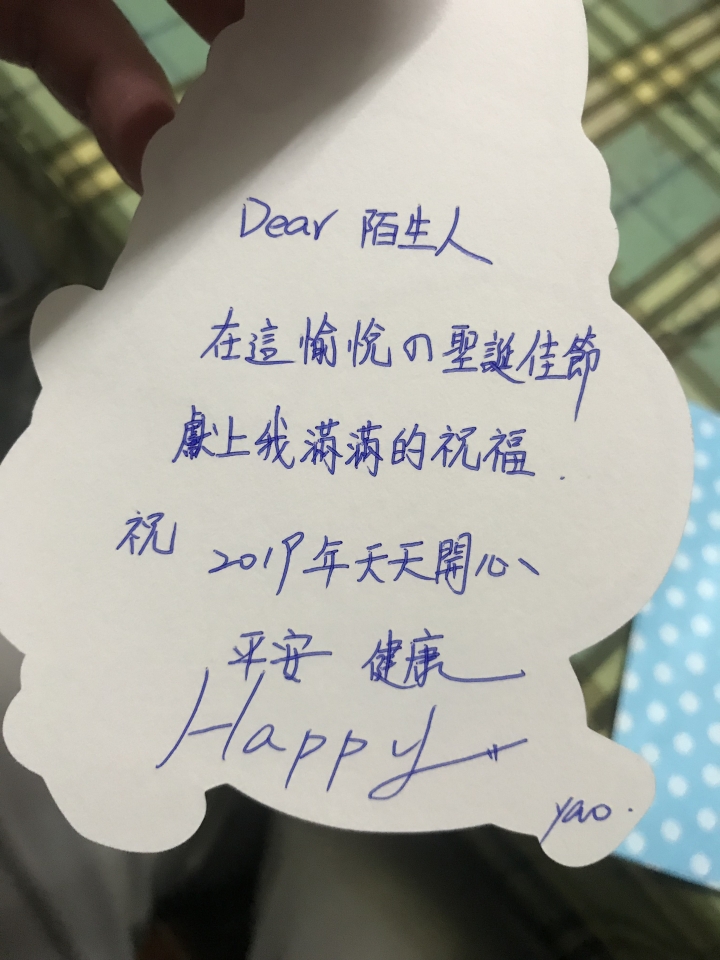 Dear 陌生人
在這愉悅の聖誕佳節
獻上我滿滿的祝福.
祝 2019年天天開心、
平安 健康
Happy
yao.